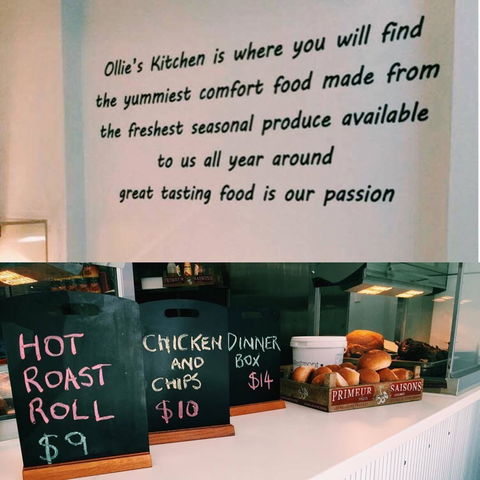 Ollie's Kitchen is where you will find
the yummiest comfort food made from
the freshest seasonal produce available
to us all year around
great tasting food is our passion
HOT
ROAST
ROLL
$9
CHICKEN
AND
CHIPS
$10
DINNER
BOX
$14
PRIMEUR
SAISONS